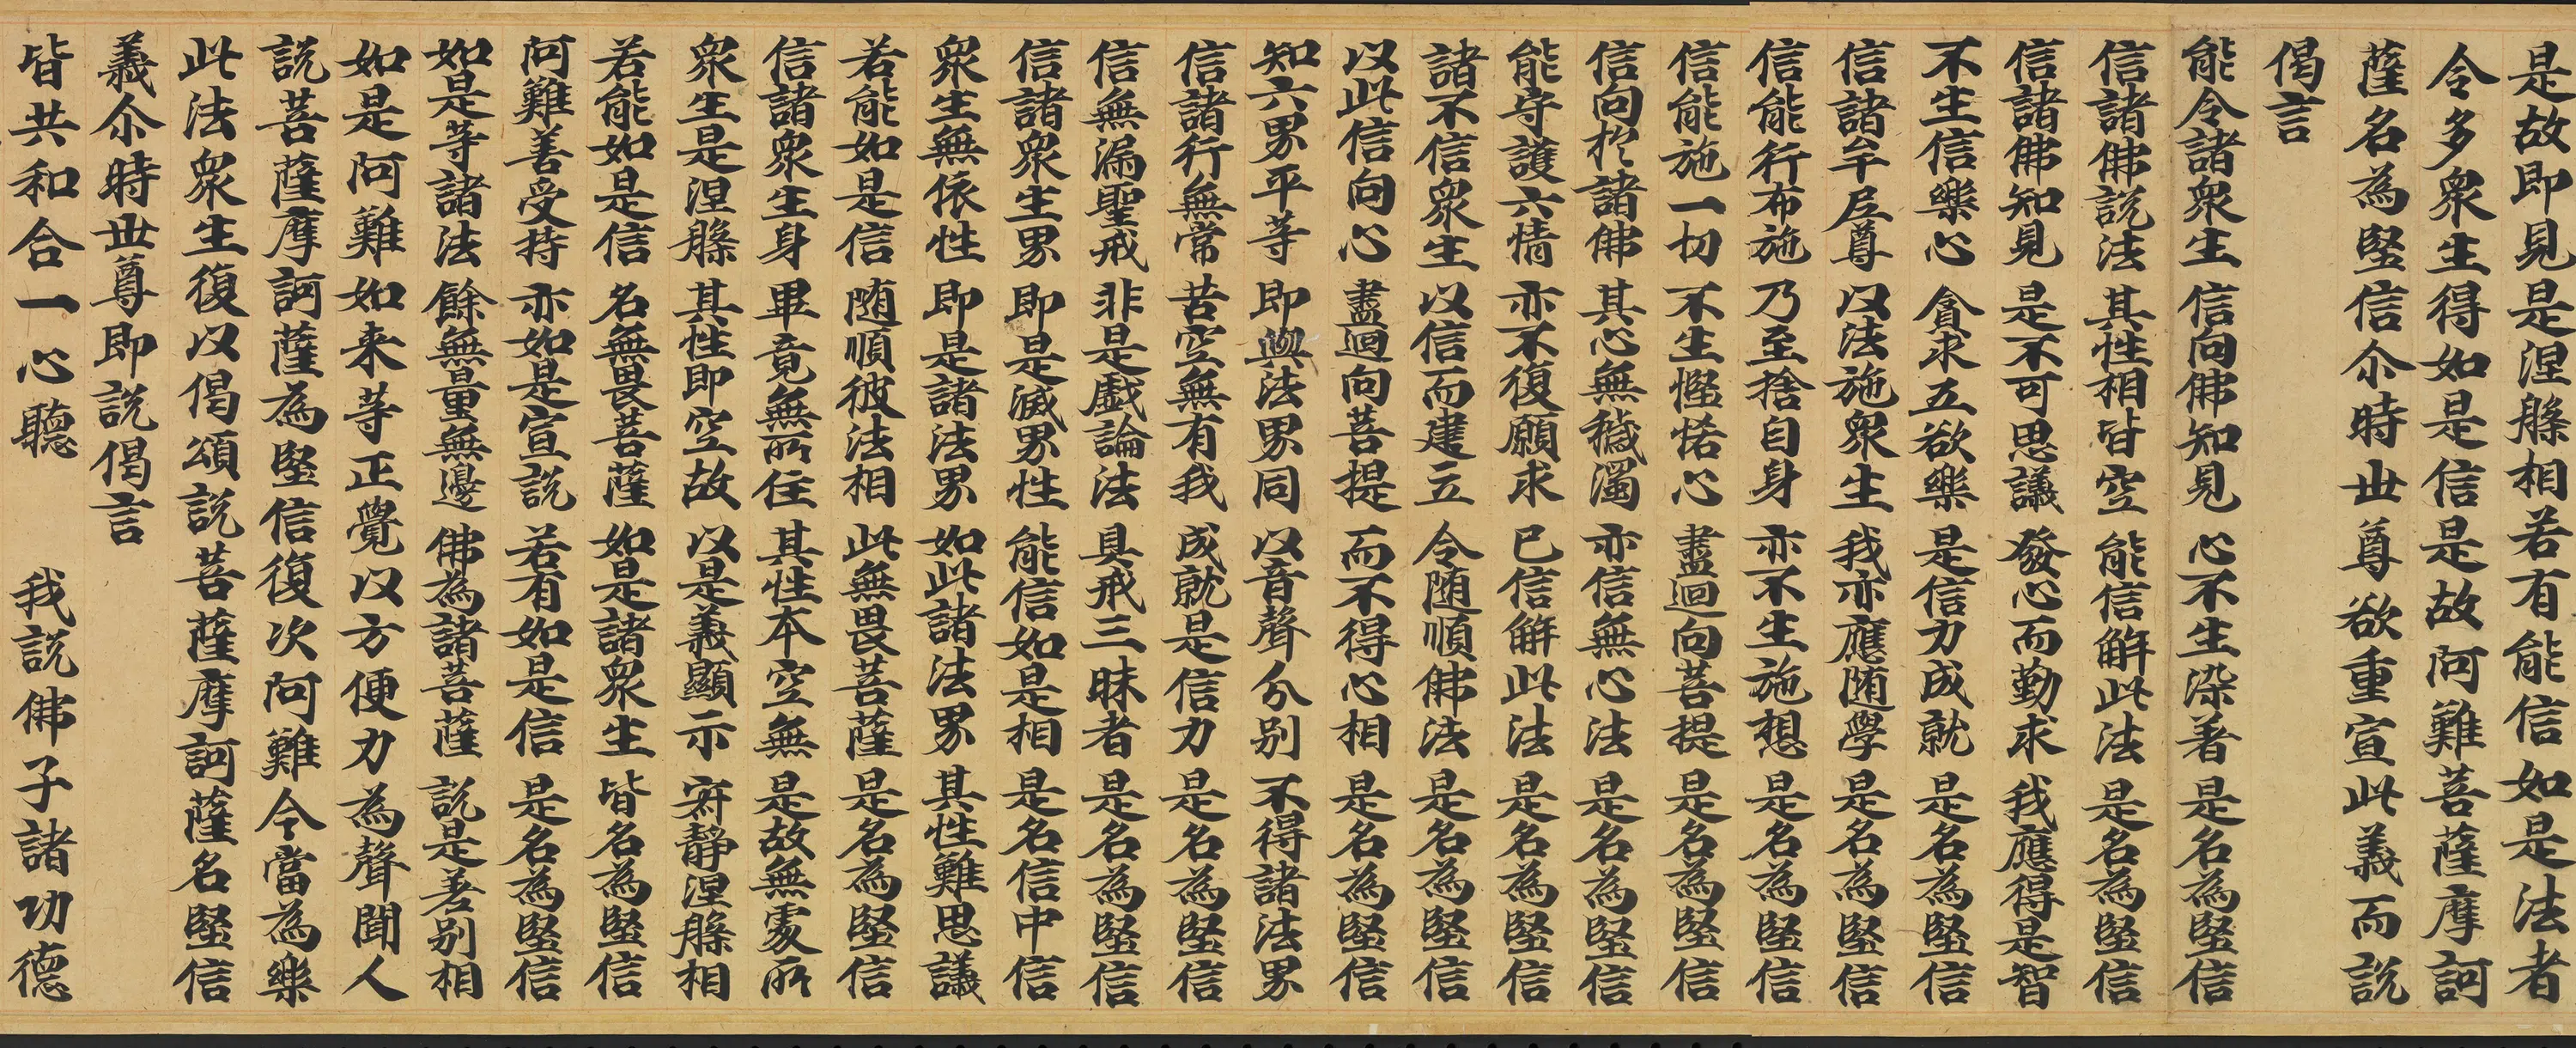 是故即見是涅槃相若有能信如是法者
令多衆生得如是信是故阿難菩薩摩訶
薩名為堅信尒時世尊欲重宣此義而說
偈言
能令諸衆生 信向佛知見 心不生染著 是名為堅信
信諸佛說法 其性相皆空 能信解此法 是名為堅信
信諸佛知見 是不可思議 發心而勤求 我應得是智
不生信樂心 貪求五欲樂 是信力成就 是名為堅信
信諸牟尼尊 以法施衆生 我亦應随學 是名為堅信
信能行布施 乃至捨自身 亦不生施想 是名為堅信
信能施一切 不生慳悋心 盡迴向菩提 是名為堅信
信向於諸佛 其心無穢濁 亦信無心法 是名為堅信
能守護六情 亦不復願求 已信解此法 是名為堅信
諸不信衆生 以信而建立 令随順佛法 是名為堅信
以此信向心 盡迴向菩提 而不得心相 是名為堅信
知六界平等 即與法界同 以音聲分別 不得諸法界
信諸行無常 苦空無有我 成就是信力 是名為堅信
信無漏聖戒 非是戲論法 具戒三昧者 是名為堅信
信諸衆生界 即是滅界性 能信如是相 是名信中信
衆生無依性 即是諸法界 如此諸法界 其性難思議
若能如是信 随順彼法相 此無畏菩薩 是名為堅信
信諸衆生身 畢竟無所住 其性本空無 是故無處所
衆生是涅槃 其性即空故 以是義顯示 寂靜涅槃相
若能如是信 名無畏菩薩 如是諸衆生 皆名為堅信
阿難善受持 亦如是宣說 若有如是信 是名為堅信
如是等諸法 餘無量無邊 佛為諸菩薩 說是差別相
如是阿難如来等正覺以方便力為聲聞人
說菩薩摩訶薩為堅信復次阿難今當為樂
此法衆生復以偈頌說菩薩摩訶薩名堅信
義尒時世尊即說偈言
皆共和合一心聽 我說佛子諸功德